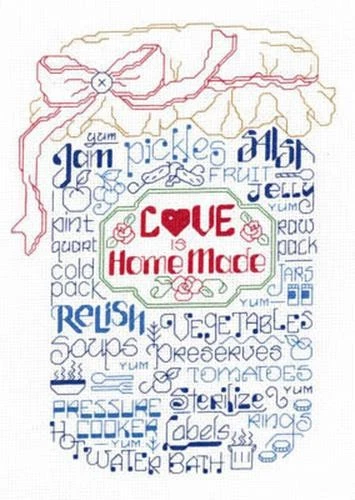 yum
Jam pickles SALSA
FRUIT
Jelly
YUM
pint
quart
LOVE
IS
HomeMade
raw
pack
cold
pack
JARS
YUM
RELISH
VEGETABLES
Soups
Preserves
YUM
TOMATOES
YUM
Sterilize
PRESSURE
COOKER
Labels
rings
HOT
YUM
WATER BATH